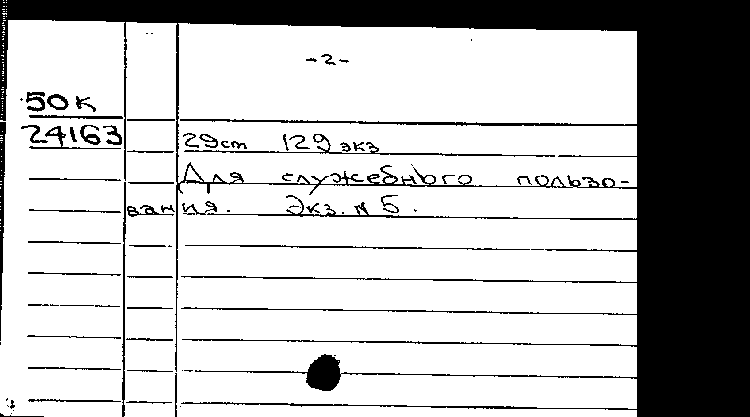 -2-
50к
24163
29ст 129 экз
Для служебного пользо-
вания. Экз. № 5.